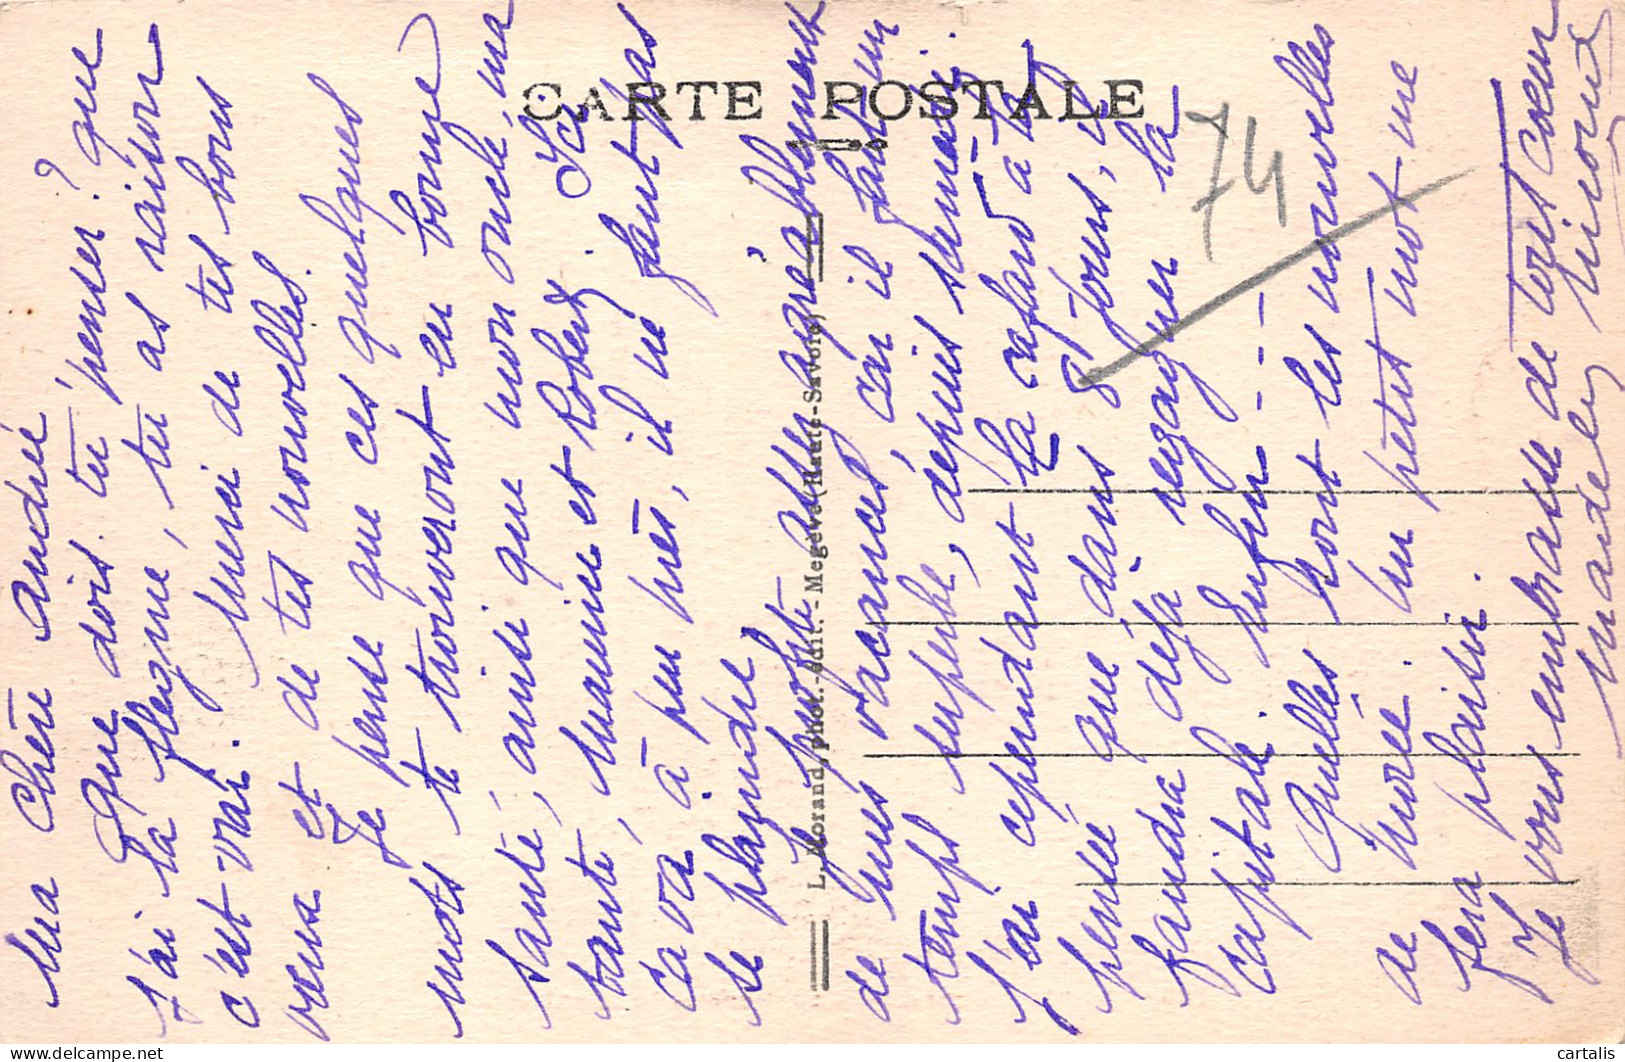 CARTE POSTALE
74
L. Morand, phot.-édit. - Megève (Haute-Savoie)
Ma Chère Andrée
Que dois tu penser? que
j'ai la flegme, tu as raison
c'est vrai. Merci de tes bons
vœux et de tes nouvelles.
Je pense que ces quelques
mots te trouveront en bonne
santé, ainsi que mon oncle, ma
tante, Maurice et Robert. Ici
ça va, à peu près, il ne faut pas
se plaindre
Je profite agréablement
de mes vacances, car il fait un
temps superbe, depuis semaine.
J'ai cependant la cafard à la
pensée que dans 8 jours, il
faudra déjà regagner la
capitale. Enfin - - - -
Quelles sont les nouvelles
de Un petit mot me
fera plaisir.
Je vous embrasse de tout cœur
cartalis